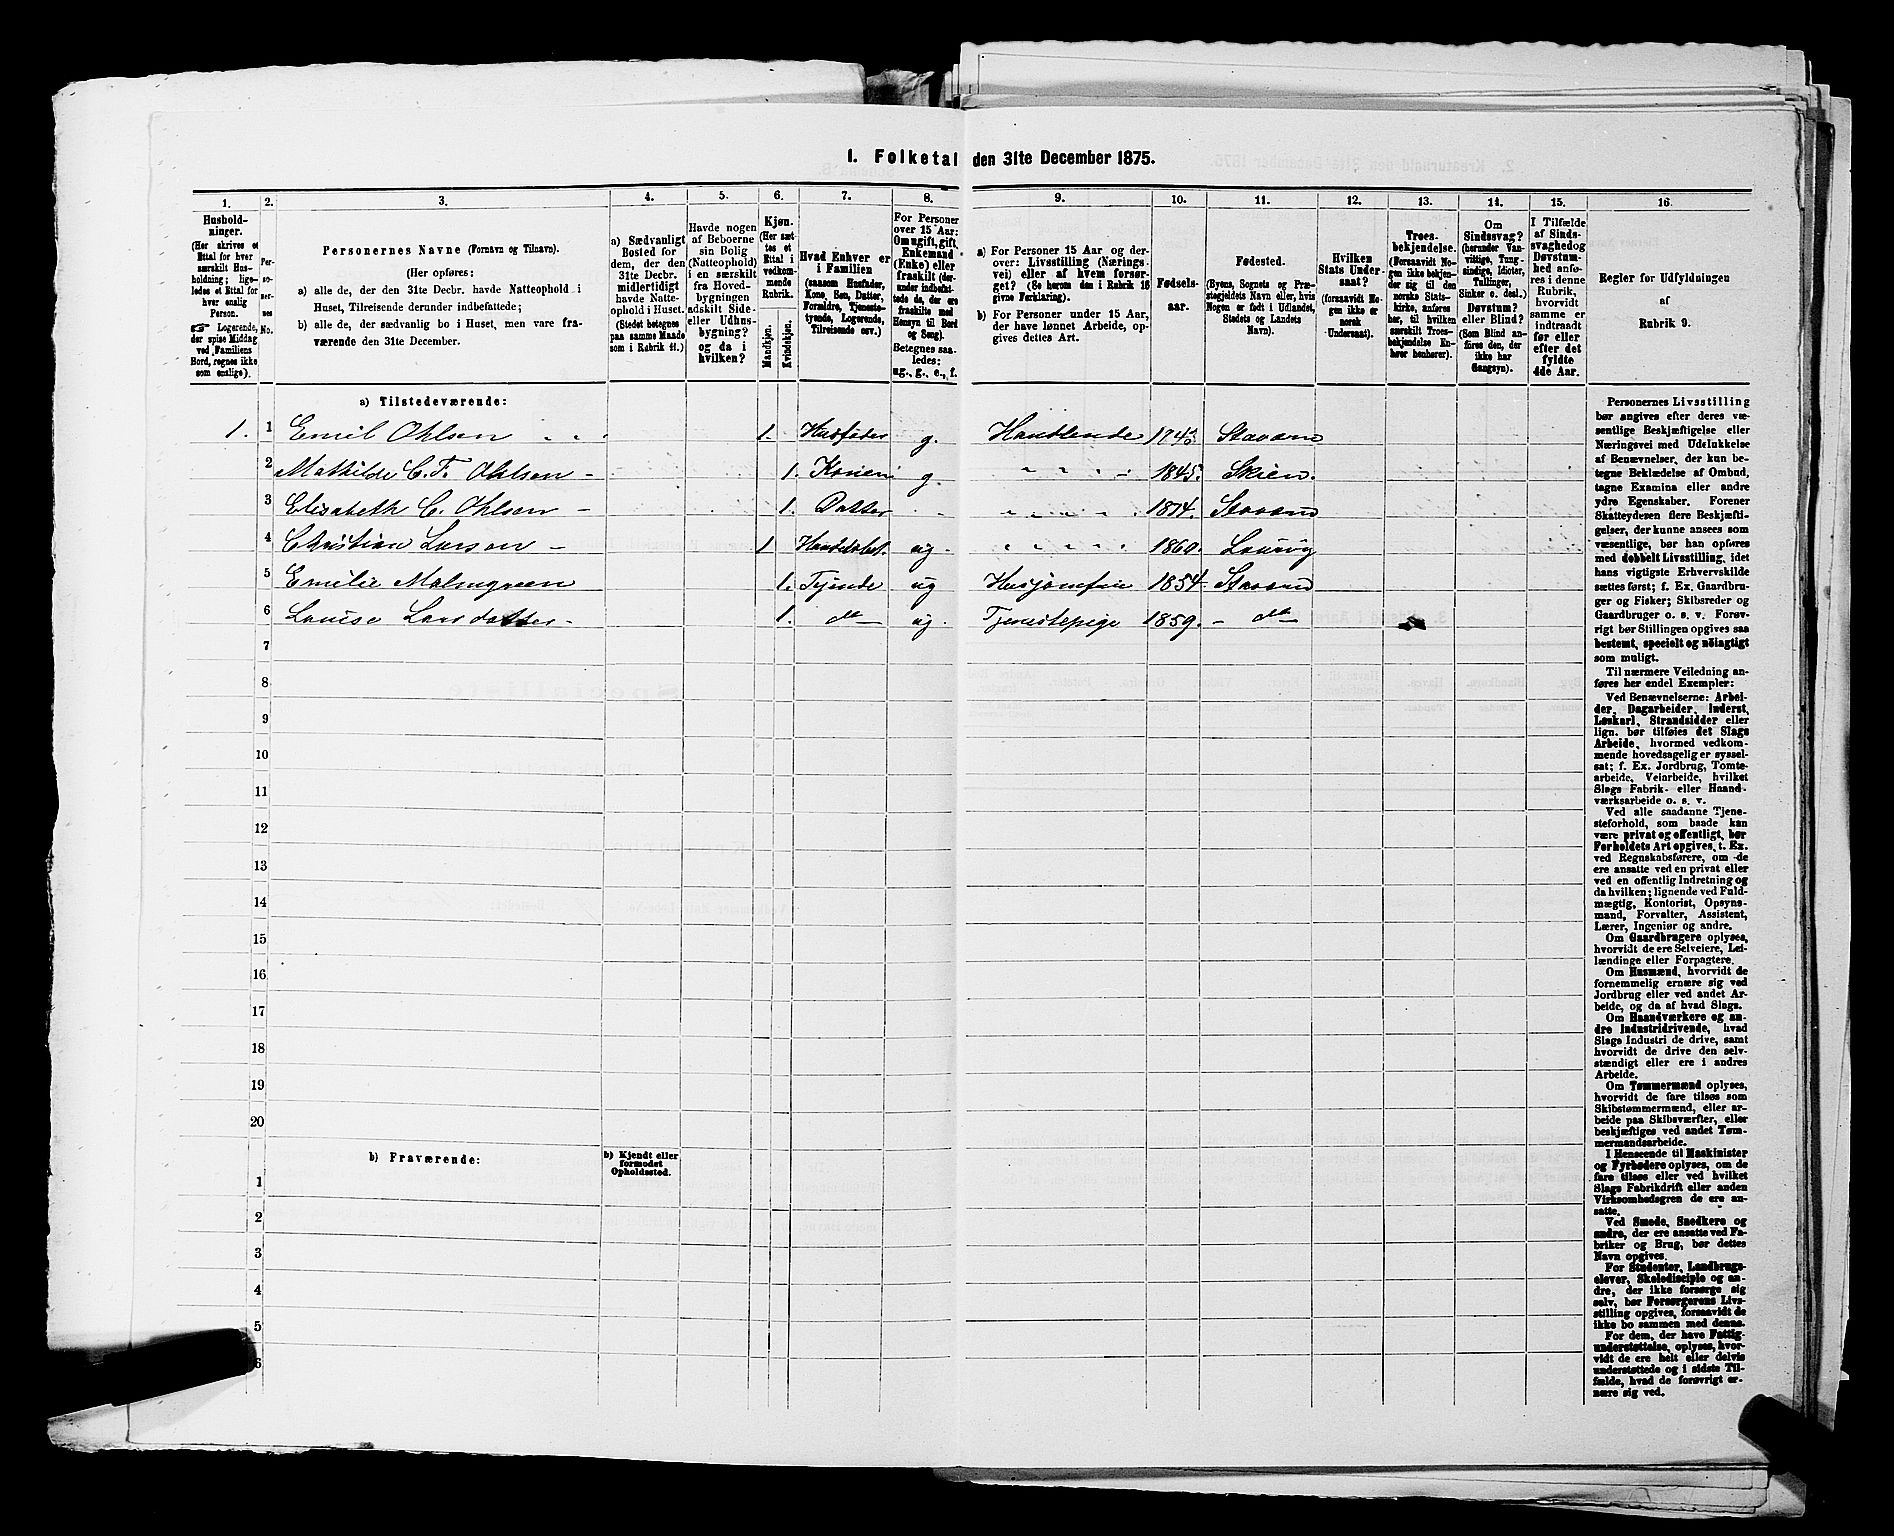 1. Folketal den 31te December 1875.
1.
Husholdninger.
(Her skrives et
Ettal for hver
særskilt Husholdning; ligeledes et Ettal for
hver enslig
Person.
Logerende,
der spise Middag
ved Familiens
Bord, regnes ikke
som enslige).
2.
Personernes
No.
3.
Personernes Navne (Fornavn og Tilnavn).
(Her opføres:
a) alle de, der den 31te Decbr. havde Natteophold i
Huset, Tilreisende derunder indbefattede;
b) alle de, der sædvanlig bo i Huset, men vare fraværende den 31te December.
4.
a) Sædvanligt
Bosted for
dem, der den
31te Decbr.
midlertidigt
havde Natteophold i Huset.
(Stedet betegnes
paa samme Maade
som i Rubrik 11.)
5.
Havde nogen
af Beboerne
sin Bolig
(Natteophold)
i en særskilt
fra Hovedbygningen
adskilt Side-
eller Udhusbygning?
og da i
hvilken?
6.
Kjøn.
(Her sættes et
Ettal i
vedkommende
Rubrik.
Mandkjøn.
Kvindekjøn.
7.
Hvad Enhver er
i Familien
(saasom Husfader,
Kone, Søn, Datter,
Forældre, Tjenestetyende, Logerende,
Tilreisende osv.)
8.
For Personer
over 15 Aar:
Om ugift, gift,
Enkemand
(Enke) eller
fraskilt (derunder indbefattede de, der ere
fraskilte med
Hensyn til Bord
og Seng).
Betegnes saaledes:
ug., g., e., f.
9.
a) For Personer 15 Aar og derover: Livsstilling (Næringsvei) eller af hvem forsørget? (Se herom den i Rubrik 16
givne Forklaring).
b) For Personer under 15 Aar,
der have lønnet Arbeide, opgives dettes Art.
10.
Fødselsaar.
11.
Fødested.
(Byens, Sognets og Præstegjeldets Navn eller, hvis
Nogen er født i Udlandet,
Stedets og Landets
Navn).
12.
Hvilken
Stats Undersaat?
(forsaavidt Nogen ikke er
norsk
Undersaat).
13.
Troesbekjendelse.
(Forsaavidt Nogen ikke bekjender sig til den
norske Statskirke, anføres
her, til hvilken
særskilt Troesbekjendelse Enhver henhører).
14.
Om
Sindssvag?
(herunder Vanvittige, Tungsindige, Idioter,
Tullinger,
Sinker o. desl.)
Døvstum?
eller Blind?
(Som Blind anføres den, der
ikke har
Gangsyn).
15.
I Tilfælde
af Sindssvaghed og
Døvstumhed anføres i denne
Rubrik,
hvorvidt
samme er
indtraadt
før eller
efter det
fyldte
4de Aar.
16.
Regler for Udfyldningen
af
Rubrik 9.
a) Tilstedeværende:
1. 1 Emil Ohlsen 1. Husfader g. Handlende Staværn
2 Mathilde C. F. Ohlsen – 1. Konen g. 1845. Skien.
3 Elizabeth C. Ohlsen – 1. Datter 1874. Staværn
4 Christian Larsen – 1 ug. 1860. Laurvig
5 Emilie Malmgreen 1. Tjende ug 1854. Staværn
6 Louise Larsdatter – 1. do ug. Tjenestepige 1859. – do
7
8
9
10
11
12
13
14
15
16
17
18
19
20
b) Fraværende:
b) Kjendt eller
formodet
Opholdssted.
1
2
3
4
5
6
Personernes Livsstilling
bør angives efter deres væsentlige Beskjæftigelse eller
Næringsvei med Udelukkelse
af Benævnelser, der kun betegne Beklædelse af Ombud,
tagne Examina eller andre
ydre Egenskaber. Forener
Skatteyderen flere Beskjæftigelser, der kunne ansees som
væsentlige, bør han opføres
med dobbelt Livsstilling, idet
hans vigtigste Erhvervskilde
sættes først; f. Ex. Gaardbruger og Fisker; Skibsreder og
Gaardbruger o. s. v. Forøvrigt bør Stillingen opgives saa
bestemt, specielt og nøiagtigt
som muligt.
Til nærmere Veiledning anføres her endel Exempler:
Ved Benævnelserne: Arbeider, Dagarbeider, Inderst,
Løskarl, Strandsidder eller
lign. bør tilføies det Slags
Arbeide, hvormed vedkommende hovedsagelig er sysselsat; f. Ex. Jordbrug, Tomtearbeide, Veiarbeide, hvilket
Slags Fabrik- eller Haandværksarbeide o. s. v.
Ved alle saadanne Tjenesteforhold, som baade kan
være privat og offentligt, bør
Forholdets Art opgives, t. Ex.
ved Regnskabsførere, om de
ere ansatte ved en privat eller
ved en offentlig Indretning og
da hvilken; lignende ved Fuldmægtig, Kontorist, Opsynsmand, Forvalter, Assistent,
Lærer, Ingeniør og andre.
Om Gaardbrugere oplyses,
hvorvidt de ere Selveiere, Leilændinge eller Forpagtere.
Om Husmænd, hvorvidt de
fornemmelig ernære sig ved
Jordbrug eller ved andet Arbeide, og da af hvad Slags.
Om Haandværkere og andre Industridrivende, hvad
Slags Industri de drive, samt
hvorvidt de drive den selvstændigt eller ere i andres
Arbeide.
Om Tømmermænd oplyses,
hvorvidt de fare tilsøs som
Skibstømmermænd, eller arbeide paa Skibsværfter, eller
beskjæftiges ved andet Tømmermandsarbeide.
I Henseende til Maskinister
og Fyrbødere oplyses, om de
fare tilsøs eller ved hvilket
Slags Fabrikdrift eller anden
Virksomhedsgren de ere ansatte.
Ved Smede, Snedkere og
andre, der ere ansatte ved Fabriker og Brug, bør dettes
Navn opgives.
For Studenter, Landbrugselever, Skoledisciple og andre, der ikke forsørge sig
selv, bør Forsørgerens Livsstilling opgives, forsaavidt de
ikke bo sammen med denne.
For dem, der have Fattigunderstøttelse, oplyses, hvorvidt de ere helt eller delvis
understøttede og i sidste Tilfælde, hvad de forøvrigt ernære sig ved.